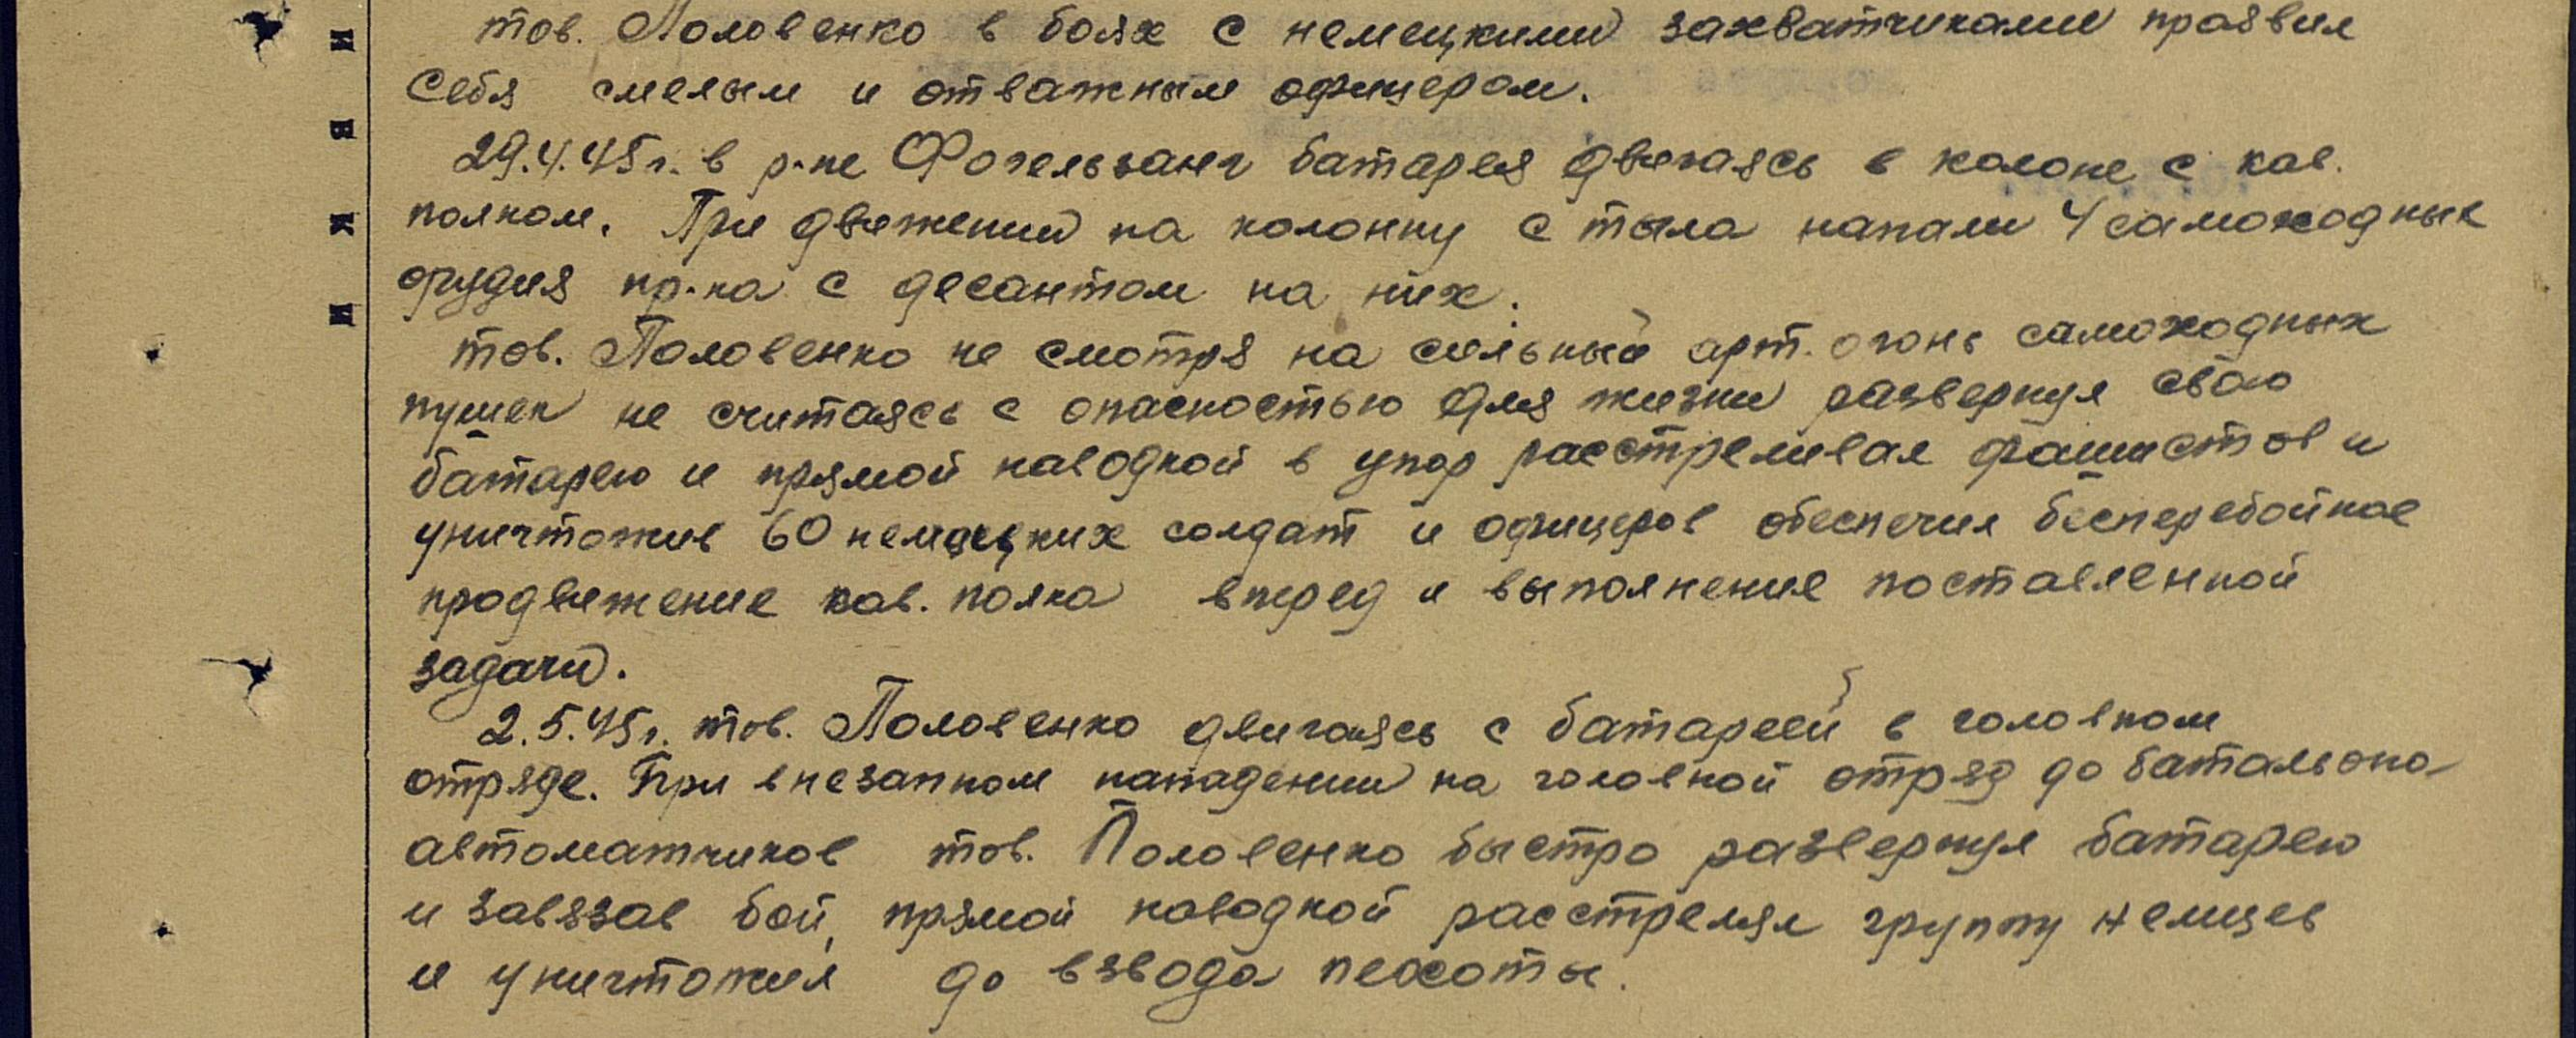 тов. Половенко в боях с немецкими захватчиками проявил
себя смелым и отважным офицером.
29.4.45 г. в р-не Фогельзанг батарея двигаясь в колоне с кав.
полком. При движении на колонну с тыла напали 4 самоходных
орудия пр-ка с десантом на них.
тов. Половенко не смотря на сильный арт. огонь самоходных
пушек не считаясь с опасностью для жизни развернул свою
батарею и прямой наводкой в упор расстреливал фашистов и
уничтожив 60 немецких солдат и офицеров обеспечил бесперебойное
продвижение кав. полка вперед и выполнение поставленной
задачи.
2.5.45 г. тов. Половенко двигаясь с батареей в головном
отряде. При внезапном нападении на головной отряд до батальона
автоматчиков тов. Половенко быстро развернул батарею
и завязав бой, прямой наводкой расстрелял группу немцев
и уничтожил до взвода пехоты.
И
В
К
И